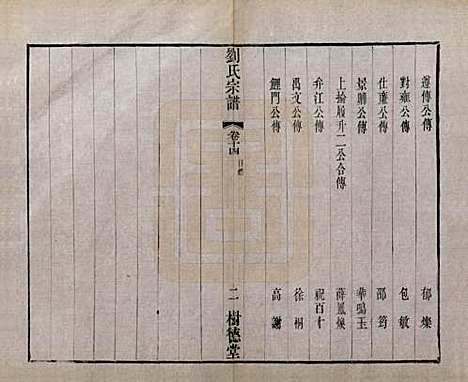 遵傳公傳 郁燦
對雍公傳 包敏
仕廉公傳 邵筠
景時公傳 華鳴玉
上掄履升二公合傳 薛鳳煥
弁江公傳 祝百十
禹文公傳 徐桐
鯉門公傳 高謝
劉氏宗譜 卷十四 目 二 樹德堂